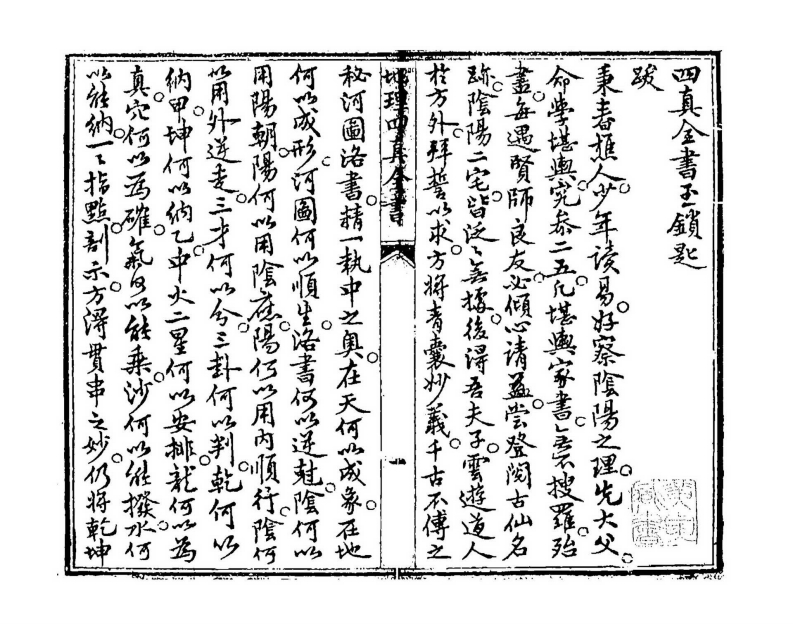 四真全書玉鎖匙
跋
東春樵人少年讀易好察陰陽之理先大父
命學堪輿究參二五凡堪輿家書無不搜羅殆
盡每遇賢師良友必傾心請益嘗登閱古仙名
跡陰陽二宅皆泛泛無據後得吾夫子雲遊道人
於方外拜誓以求方將青囊妙義千古不傳之
地理四真全書
一
秘河圖洛書精一執中之奧在天何以成象在地
何以成形河圖何以順生洛書何以逆尅陰何以
用陽朝陽何以用陰應陽何以用內順行陰何
以用外逆走三才何以分三卦何以判乾何以
納甲坤何以納乙中火二星何以安排龍何以為
真穴何以為確氣何以能乘沙何以能撥水何
以能納一一指點剖示方得貫串之妙仍將乾坤